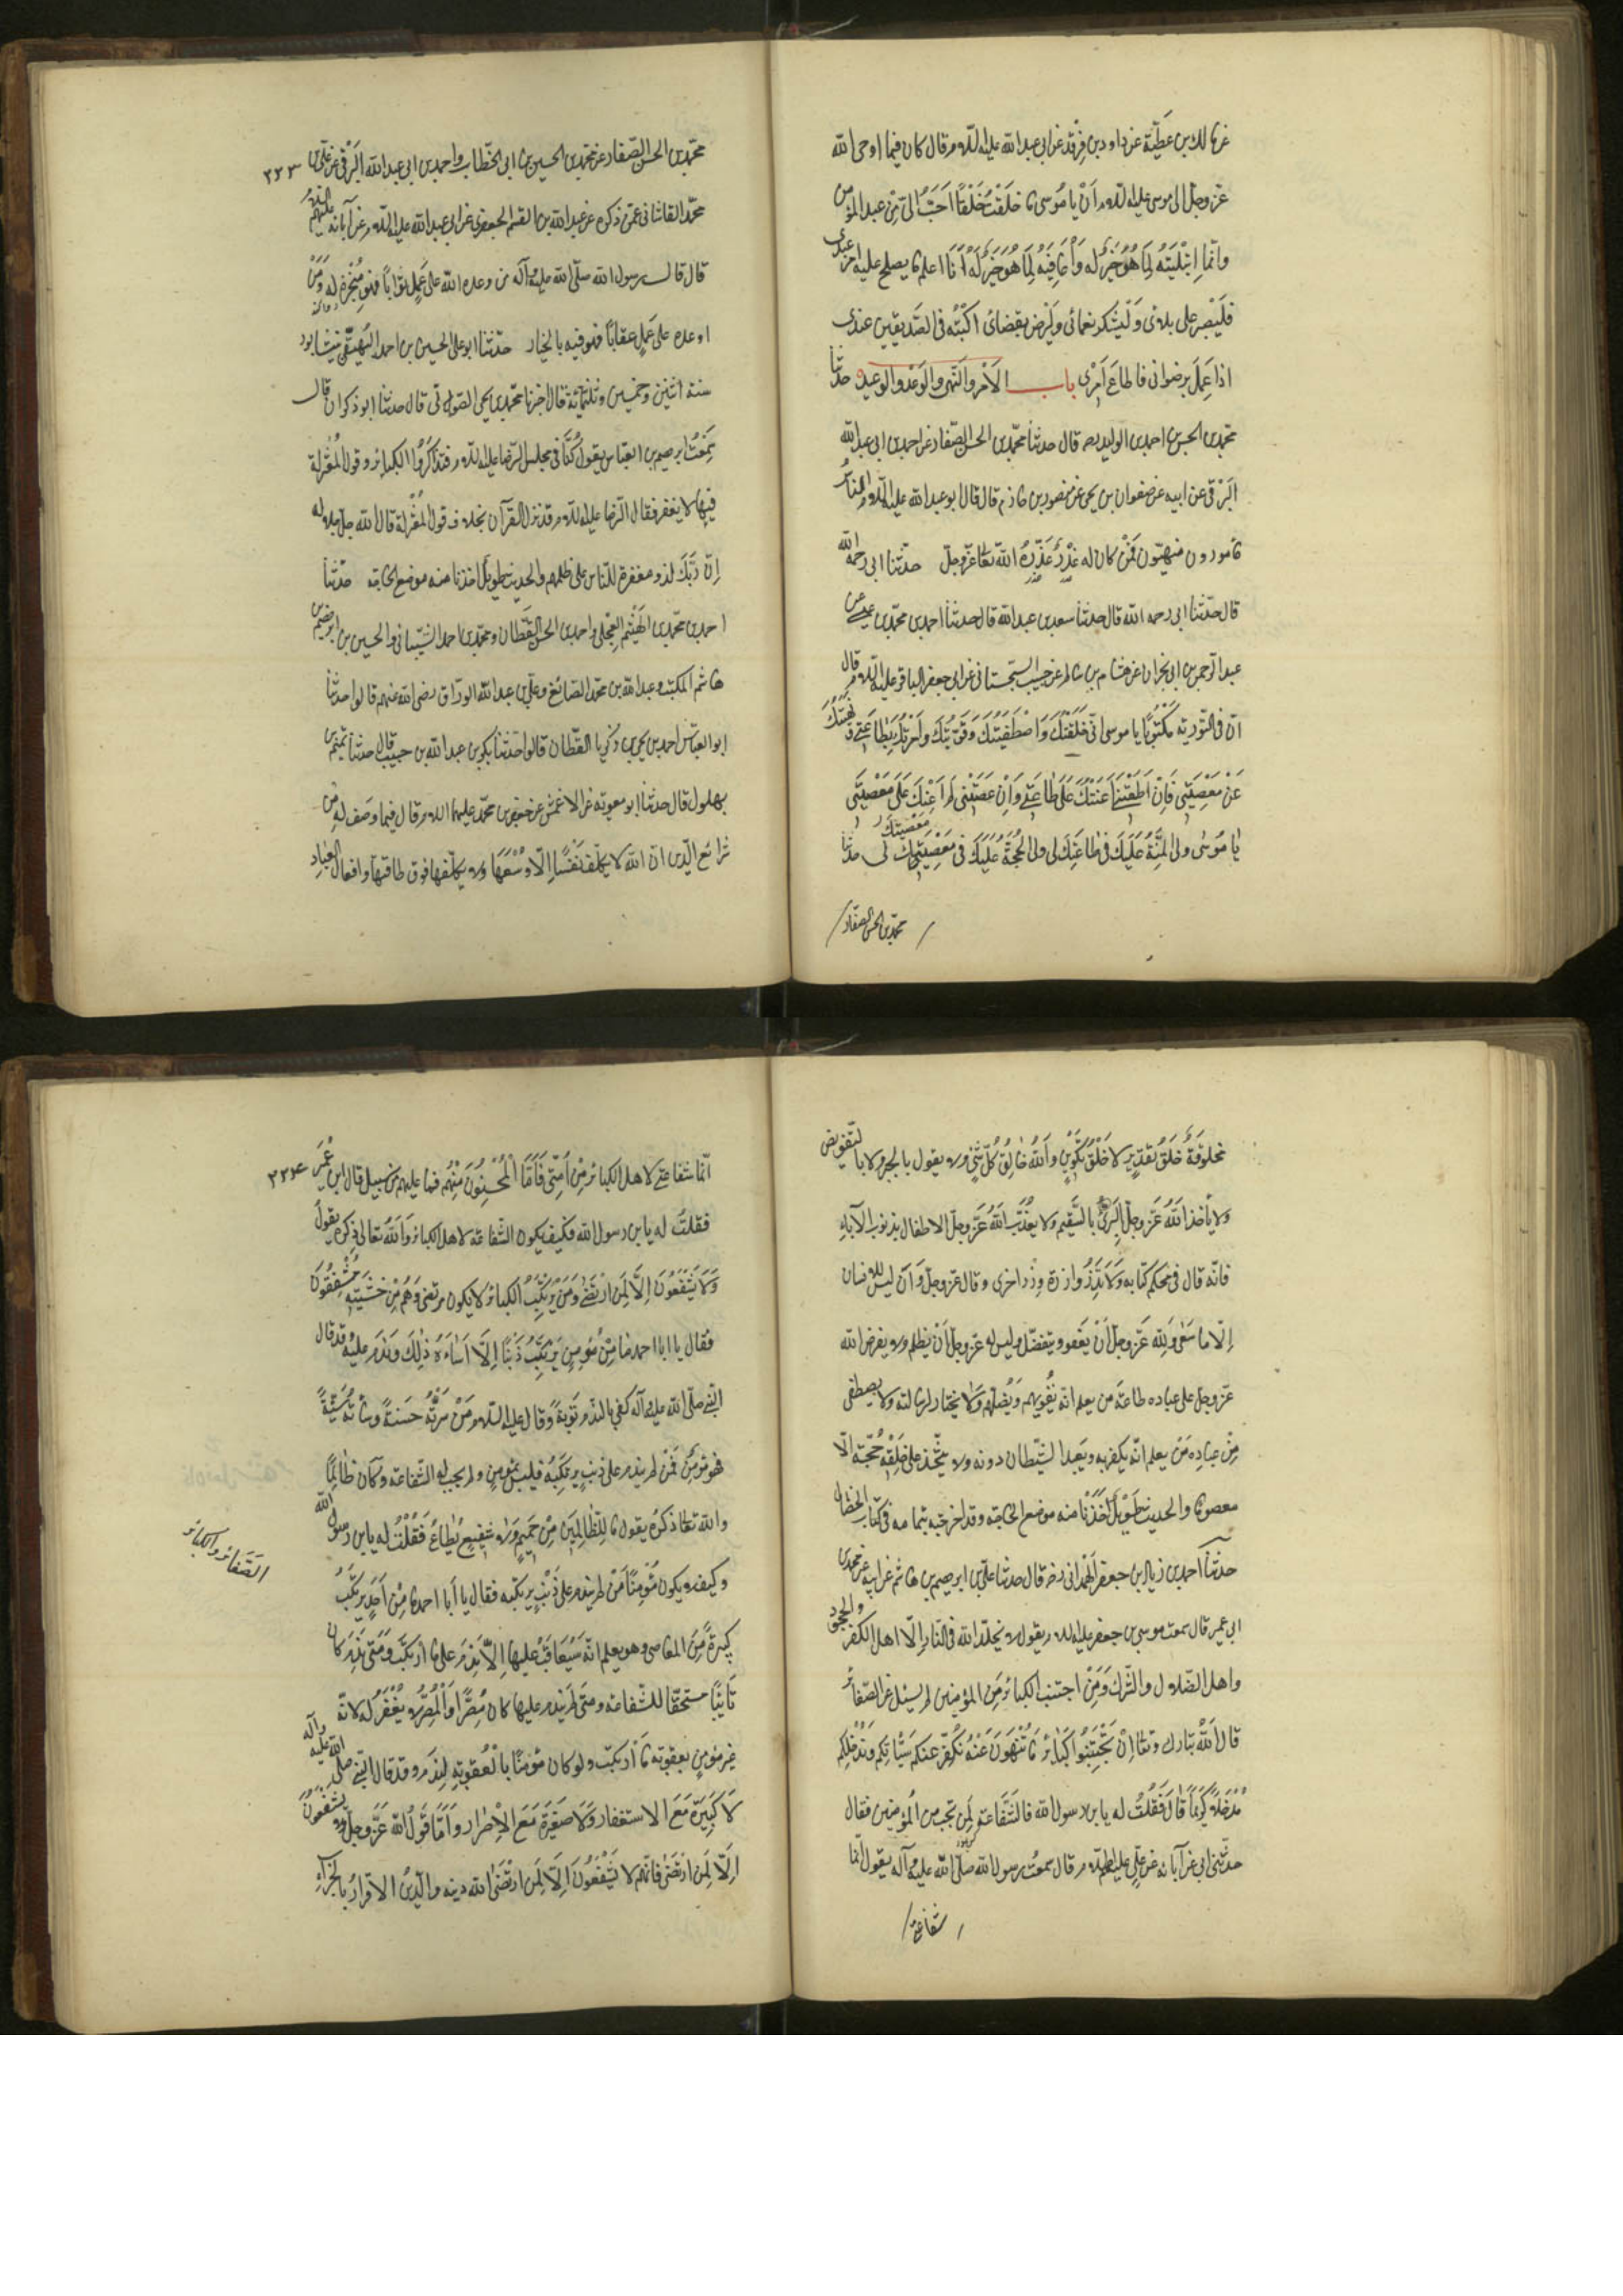 عن مالك بن عطية عن داود بن فرقد عن ابى عبد الله عليه السلام قال كان فيما اوحى الله
عز وجل الى موسى عليه السلام اَنْ يا مُوسى ما خلقتُ خَلْقًا اَحَبَّ الىّ مِنْ عبدى المؤمن
وانّما اِبْتَلَيتُه لِمَا هُوَ خَيرٌ له وَاُعافيه لِمَا هُوَ خَيرٌ لَهُ وَ اَنَا اعلم بما يصلح عليه امر عبدى
فليَصْبر على بلائى وَلْيَشكر نعمائى وَليَرْض بقضائى اكتبْه فى الصّديقين عندى
اذا عَمِلَ برضوانى فاطاعَ اَمْرى باب الاَمْر والنَّهى والوَعْد والوعيد حدثنا
محمّد بن الحسن بن احمد بن الوليد ره قال حدثنا محمّد بن الحسن الصّفار عن احمد بن ابى عبد الله
البَرْقى عن ابيه عن صفوان بن يحيى عن منصور بن حازم قال قال ابو عبد الله عليه السّلام الناسُ
مامورون منهيّون فَمَنْ كان له عُذْرٌ عَذّرَهُ الله تعا عزّ وجلّ حدّثنا ابى رحمه الله
قال حدّثنا ابى رحمه الله قال حدثنا سعد بن عبد الله قال حدثنا احمد بن محمّد بن عيسى عن
عبد الرّحمن بن ابى نجران عن هشام بن سالم عن حبيب السّجستانى عن ابى جعفر الباقر عليه السّلام قال
انّ فى التّورية مَكْتوبًا يا موسى انّى خَلَقْتُكَ وَاصْطَفَيْتُكَ وَقَوَّيْتُكَ وَاَمَرْتُكَ بِطاعَتى وَ نَهَيْتُكَ
عَنْ مَعْصِيَتى فَاِنْ اَطَعْتَنى اَعَنْتُكَ عَلى طاعَتى وَاِنْ عَصَيْتَنى لَم اُعِنْكَ عَلى مَعْصِيَتى
يا مُوسى ولى المِنَّةُ عَلَيكَ فى طاعَتِكَ لى ولى الحُجَّةُ عَلَيكَ فى مَعْصِيَتِكَ لى حدثنا
معصيتك
محمّد بن الحسن الصفّار
٢٢٣
محمّد بن الحسن الصّفار عن محمّد بن الحسين بن ابى الخطّاب واحمد بن ابى عبد الله البَرْقى عن على بن
محمّد القاشانى عمّن ذكره عن عبد الله بن القسم الجعفرى عن ابى عبد الله عليه السّلام عن آبائه عليهم السّلام
قال قال رسول الله صلّى الله عليه وآله من وعده الله على عَمَلٍ ثوابًا فهو مُنْجِزه له وَمَنْ
اوعده على عَمَلٍ عقابًا فهو فيه بالخيار حدّثنا ابو على الحسين بن احمد البَيهَقى بنيشابور
سنة اثنين وخمسين وثلثمائة قال اخبرنا محمّد بن يحيى الصّولى قال حدثنا ابو ذكوان قال
سَمِعْتُ ابرهيم بن العبّاس يقول كُنّا فى مجلس الرّضا عليه السّلام فتذاكَرُوا الكبائر وقول المُعْتَزلة
فيها لا يغفر فقال الرّضا عليه السّلام قد نزل القرآن بخلاف قول المُعْتَزلة قال الله جلّ جلاله
اِنّ ربَّكَ لذو مغفرة للنّاس على ظلمهم والحديث طويل اخذنا منه موضع الحاجة حدّثنا
احمد بن محمّد بن الهَيْثَم العِجْلى واحمد بن الحسن القَطّان ومحمّد بن احمد السّنانى والحسين بن ابرهيم بن
هاشم المكتب وعبد الله بن محمّد الصّائغ وعلى بن عبد الله الورّاق رضى الله عنهم قالوا حدثنا
ابو العبّاس احمد بن يحيى بن زكريا القطّان قالوا حدّثنا بكر بن عبد الله بن حبيب قال حدثنا تميم بن
بهلول قال حدثنا ابو معوية عن الاعمش عن جعفر بن محمّد عليهما السلام قال فيما وصف له من
شرائع الدّين انّ الله لا يكلّف نَفْسًا اِلّا وُسْعَهَا ولا يكلّفها فوق طاقتها وافعال العِبادِ
مخلوقةٌ خَلْقَ تقديرٍ لا خَلْقَ تكوينٍ وَاَللهُ خالِقُ كُلّ شَىْءٍ ولا يقول بالجبر ولا بالتّفويض
ولا يأخذ اللهُ عَزّ وجلّ البَرىّ بالسَّقيم ولا يُعَذّب اللهُ عَزّ وجلّ الاطفال بذنوب الآباءِ
فانّه قال فى محكم كتابه وَلا تَزِرُ وازرة وِزْرَ اخرى وقال عزّ وجلّ وَاَنْ ليس للانسان
اِلّا ما سَعى وَلِله عَزّ وجلّ اَنْ يَعْفو ويتفضّل وليس له عزّ وجلّ اَنْ يظلم ولا يفرض الله
عزّ وجلّ على عباده طاعةَ من يعلم انّه يُغْويهم وَيُضلّهم وَلا يختار لرسالته ولا يصطفى
مِنْ عِبادِه مَنْ يعلم انّه يكفر به ويَعْبد الشّيطان دونه ولا يتّخذ على خَلْقه حُجّة اِلّا
معصومًا والحديث طَويل اَخذنا منه موضع الحاجة وقد اخرجته بتمامه فى كتاب الخصال
حدثنا احمد بن زياد بن جعفر الهَمْدانى رضه قال حدثنا على بن ابرهيم بن هاشم عن ابيه عن محمد بن
ابى عمير قال سمعت موسى بن جعفر عليه السلام يقول لا يخلّد الله فى النّار اِلّا اهل الكفر والجحود
واهل الضّلال والشّرك وَمَنْ اجتنب الكبائر مِنَ المؤمنين لم يسئل عن الصّغائر
قال اَللهُ تبارك وتعا اِنْ تَجْتَنِبُوا كَبائِر ما تُنْهَوْنَ عَنْهُ نُكَفِّرْ عنكم سَيّئاتِكم وَنُدْخلكم
مُدْخَلًا كَريمًا قالَ فَقُلتُ له يا بن رسول الله فالشَّفَاعة لِمَن تجب من المُؤمنين فقال
حدّثنى ابى عن آبائه عن على عليهم السّلام قال سمعتُ رسول الله صلّى الله عليه وآله يقول انّما
شفاعتى
٢٢٤
انّما شفاعتى لاهل الكبائر مِنْ اُمّتى فَاَمّا الْمُحْسِنُونَ مِنْهُم فما عليهم من سبيل قال ابن ابى عُمَير
فقلتُ له يا بن رسول الله فكيف يكون الشّفاعة لاهل الكبائر وَاَللهُ تعالى ذِكره يقولُ
وَلا يَشْفَعُونَ اِلّا لِمَنِ ارْتَضى وَمَنْ يَرْتَكِبُ الكبائرَ لا يكون مرتضى وَهُم مِنْ خَشْيَتِه مُشْفِقُونَ
فقال يا ابا احمد ما مِنْ مُؤمِنٍ يَرْتَكِبُ ذَنْبًا اِلّا اَساءَهُ ذٰلِكَ وَنَدِمَ عليه وقد قال
النّبى صلّى الله عليه وآله كفى بالندم تَوْبَةً وقال عليه السّلام مَنْ سَرّتْهُ حَسَنةٌ وسائَتْهُ سَيّئَةٌ
فهو مُؤمِنٌ فَمَنْ لم يندم على ذنبٍ يرتكِبُه فليس بمُؤمِنٍ ولم يجب له الشّفاعة وكان ظالِمًا
والله تعا ذكرُه يقول ما لِلظّالِمينَ مِنْ حَميمٍ وَلا شَفيعٍ يُطاعُ فَقُلْتُ له يا بن رسول الله
وكيف لا يكون مُؤْمِنًا مَنْ لم يندم على ذَنْبٍ يرتكبه فقال يا اَبا احمد ما مِنْ اَحَدٍ يَرتَكِبُ
كبيرةً مِنَ المعاصى وهو يعلم انّه سَيُعاقَبُ عليها اِلّا نَدِمَ على ما ارتكبَ وَمَتى نَدِمَ كان
تَائِبًا مستحقّا للشّفاعة ومتى لَم يندم عليها كان مُصِرًّا وَالْمُصِرُّ لا يُغْفَرُ له لانّه
غير مُؤمنٍ بعقوبة ما ارتكبَ ولو كان مُؤمنًا بالْعُقوبَةِ لنَدِمَ وقد قال النّبى صلّى الله عليه وآله
لا كَبيرَةَ مَعَ الاستغفار وَلا صَغيرَةَ مَعَ الْاِصْرار وَاَمّا قَوْلُ الله عَزّ وجلّ ولا يشفعونَ
اِلّا لِمَن ارتَضى فانّهم لا يَشْفَعُونَ اِلّا لِمَن ارتَضَى الله دينه والدّين الاقرارُ بالجزاءِ
الصّغائر والكبائر